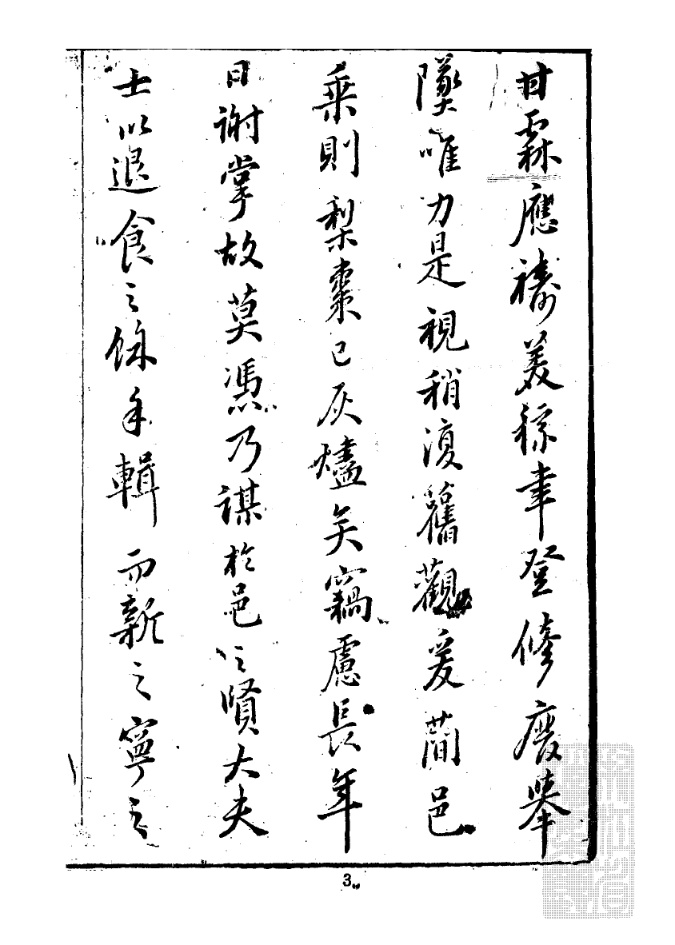 甘霖應禱美稼聿登修廢舉
墜唯力是視稍復舊觀爰蒐邑
乘則梨棗已灰燼矣竊慮長年
日謝掌故莫馮乃謀於邑之賢大夫
士以退食之餘手輯而新之寧之
3